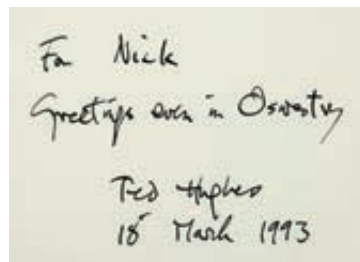 For Nick
Greetings even in Oswestry
Ted Hughes
18 March 1993